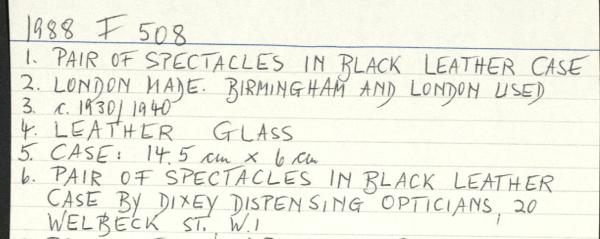 1988 F 508
1. PAIR OF SPECTACLES IN BLACK LEATHER CASE
2. LONDON MADE. BIRMINGHAM AND LONDON USED
3. c. 1930/1940
4. LEATHER GLASS
5. CASE: 14.5 cm x 6 cm
6. PAIR OF SPECTACLES IN BLACK LEATHER
CASE BY DIXEY DISPENSING OPTICIANS, 20
WELBECK ST., W.1